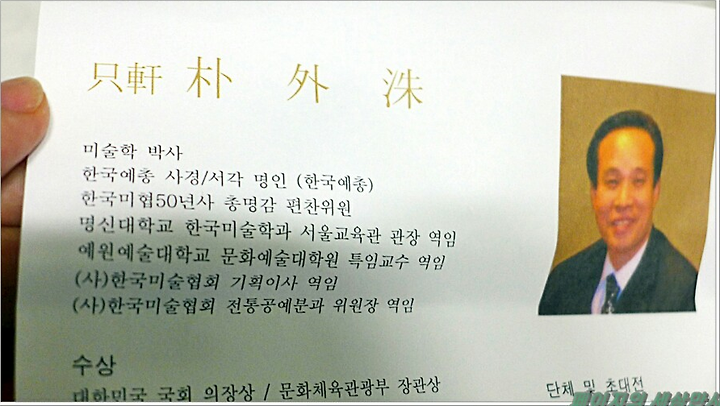 只軒 朴 外 洙
미술학 박사
한국예총 사경/서각 명인 (한국예총)
한국미협50년사 총명감 편찬위원
명신대학교 한국미술학과 서울교육관 관장 역임
예원예술대학교 문화예술대학원 특임교수 역임
(사)한국미술협회 기획이사 역임
(사)한국미술협회 전통공예분과 위원장 역임
수상
대한민국 국회 의장상 / 문화체육관광부 장관상
단체 및 초대전